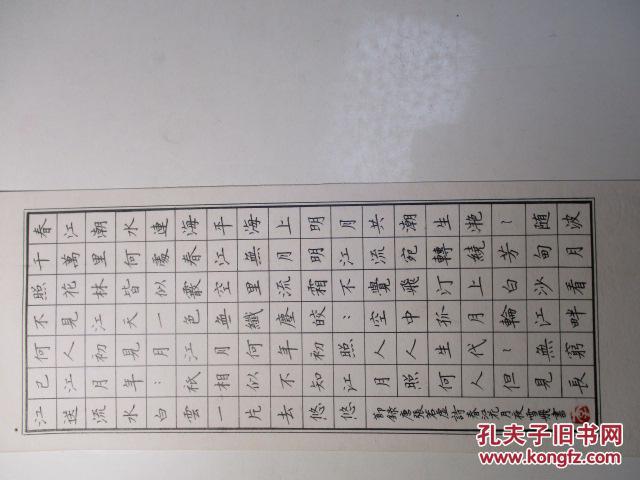 春江潮水連海平海上明月共潮生滟~随波
千萬里何處春江無月明江流宛轉繞芳甸月
照花林皆似霰空里流霜不覺飛汀上白沙看
不見江天一色無纖塵皎:空中孤月輪江畔
何人初見月江月何年初照人人生代~無窮
已江月年:祇相似不知江月照何人但見長
江送流水白雲一片去悠悠
節錄唐張若虛詩春江花月夜雪興書
孔夫子旧书网
www.kongfz.com